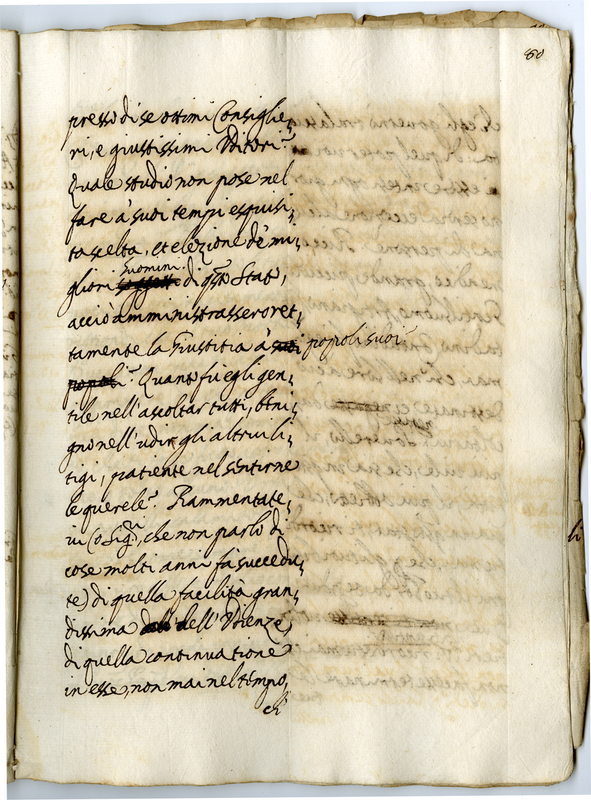 80
presso di se ottimi Consiglie,
ri, e giustissimi Uditori?
Quale studio non pose nel
fare à suoi tempi esquisi,
ta scelta, et elezione de mi,
huomini
gliori di qsto Stato,
acciò amministrassero ret,
tamente la Giustitia à popoli suoi?
Quanto fù egli gen,
tile nell'ascoltar tutti, beni,
gno nell'udir gli altrui li,
tigi, patiente nel sentirne
le querele? Rammentate,
vi (o Sigri, che non parlo di
cose molti anni fà succedu,
te) di quella facilità gran,
dissima dell'Udienze,
di quella continuatione
in esse, non mai nel tempo,
ch'